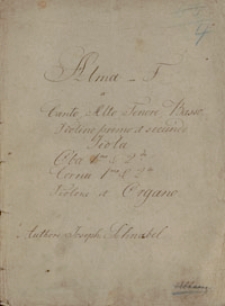 Alma - F
a
Canto, Alto Tenore Basso
Violino primo et secundo
Viola
Oba 1mo & 2do
Cornu 1mo & 2do
Violone et Organo
Authore Joseph Schnabel